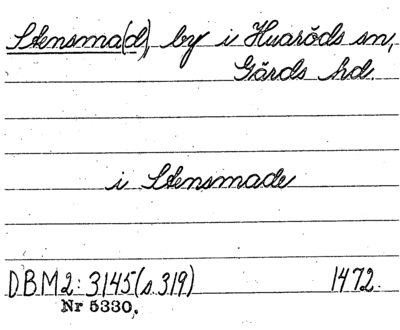 Stensma(d), by i Huaröds sn,
Gärds hd.
i Stensmade
DBM2: 3145(s.319) 1472.
Nr 5330.